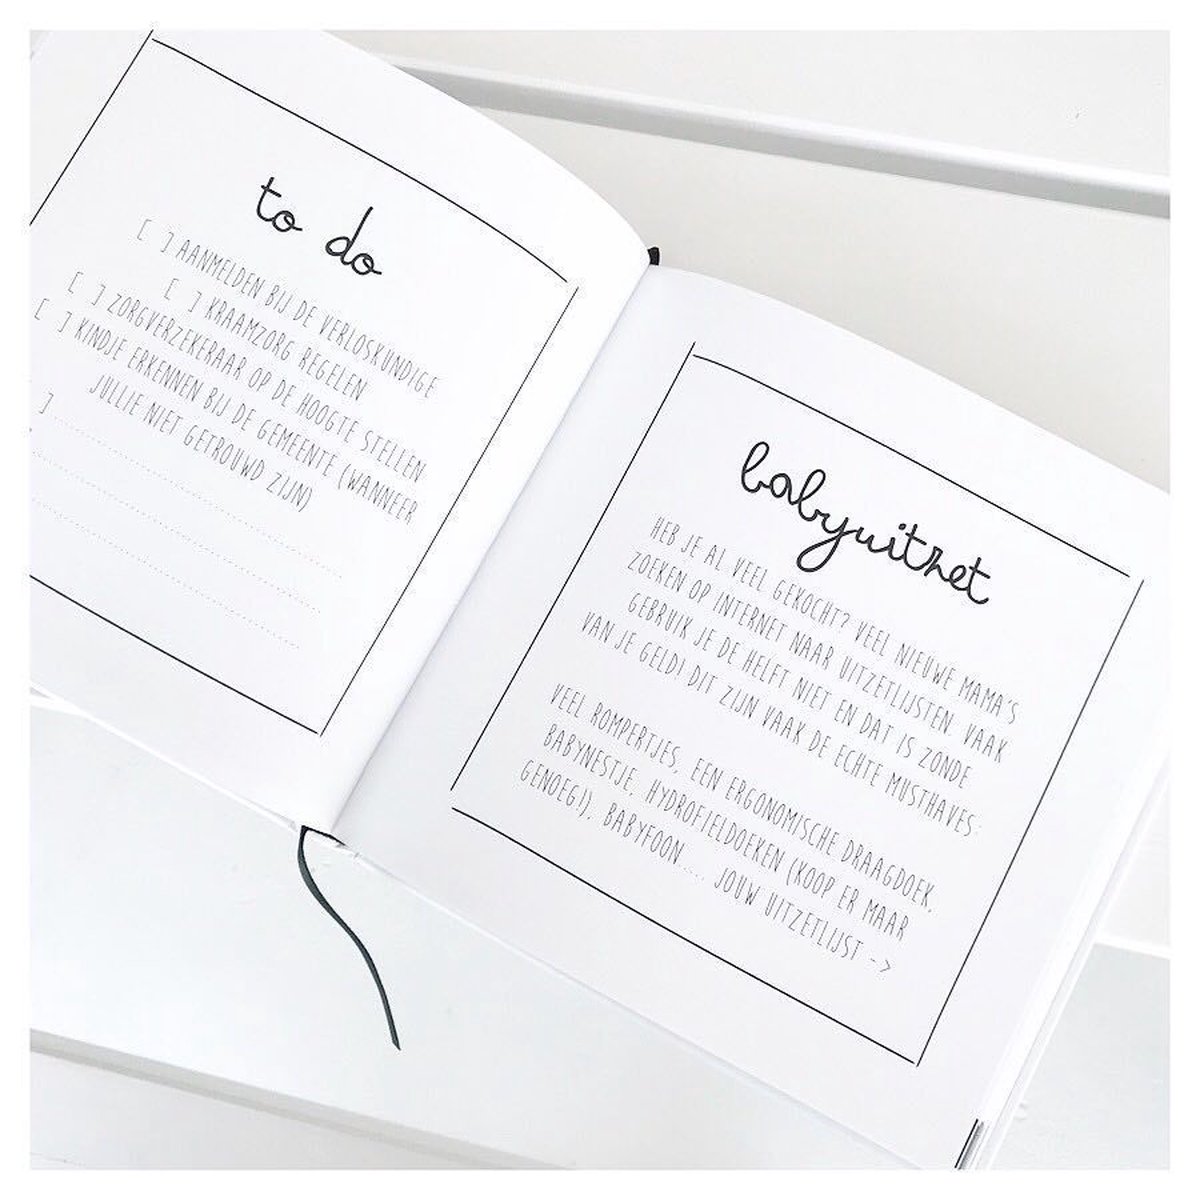 to do
[ ] AANMELDEN BIJ DE VERLOSKUNDIGE
[ ] KRAAMZORG REGELEN
[ ] ZORGVERZEKERAAR OP DE HOOGTE STELLEN
[ ] KINDJE ERKENNEN BIJ DE GEMEENTE (WANNEER
JULLIE NIET GETROUWD ZIJN)
] ........................................
babyuitzet
HEB JE AL VEEL GEKOCHT? VEEL NIEUWE MAMA'S
ZOEKEN OP INTERNET NAAR UITZETLIJSTEN. VAAK
GEBRUIK JE DE HELFT NIET EN DAT IS ZONDE
VAN JE GELD! DIT ZIJN VAAK DE ECHTE MUSTHAVES:
VEEL ROMPERTJES, EEN ERGONOMISCHE DRAAGDOEK,
BABYNESTJE, HYDROFIELDOEKEN (KOOP ER MAAR
GENOEG!), BABYFOON..... JOUW UITZETLIJST ->